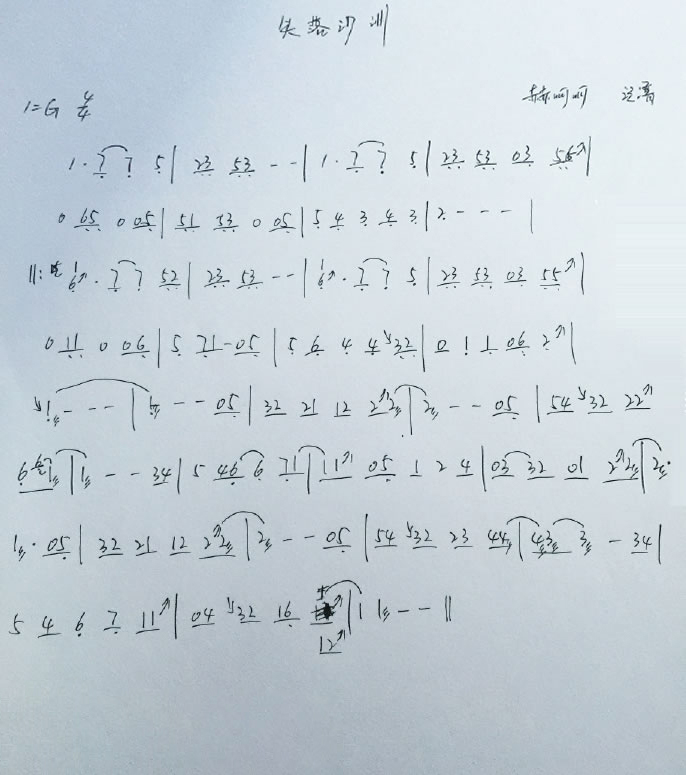 失落沙洲
1=G 4/4
赫呵呵
1 · 7 7 5 | 23 53 - - | 1 · 7 7 5 | 23 53 03 56 |
0 65 0 05 | 51 53 0 05 | 5 4 3 4 3 | 2 - - - |
‖: 1 6 · 7 7 52 | 23 53 - - | 1 6 · 7 7 5 | 23 53 03 55 |
0 11 0 06 | 5 71 - 05 | 5 6 4 4 32 | 0 1 1 06 2 |
1 - - - | 1 - - 05 | 32 21 12 2 2 | 2 - - 05 | 54 32 22
6 1 | 1 - - 34 | 5 46 6 71 | 11 05 1 2 4 | 03 32 01 2 2 | 2 ·
1 · 05 | 32 21 12 2 2 | 2 - - 05 | 54 32 23 44 | 43 3 - 34 |
5 4 6 7 11 | 04 32 16 | 1 1 - - ‖
12